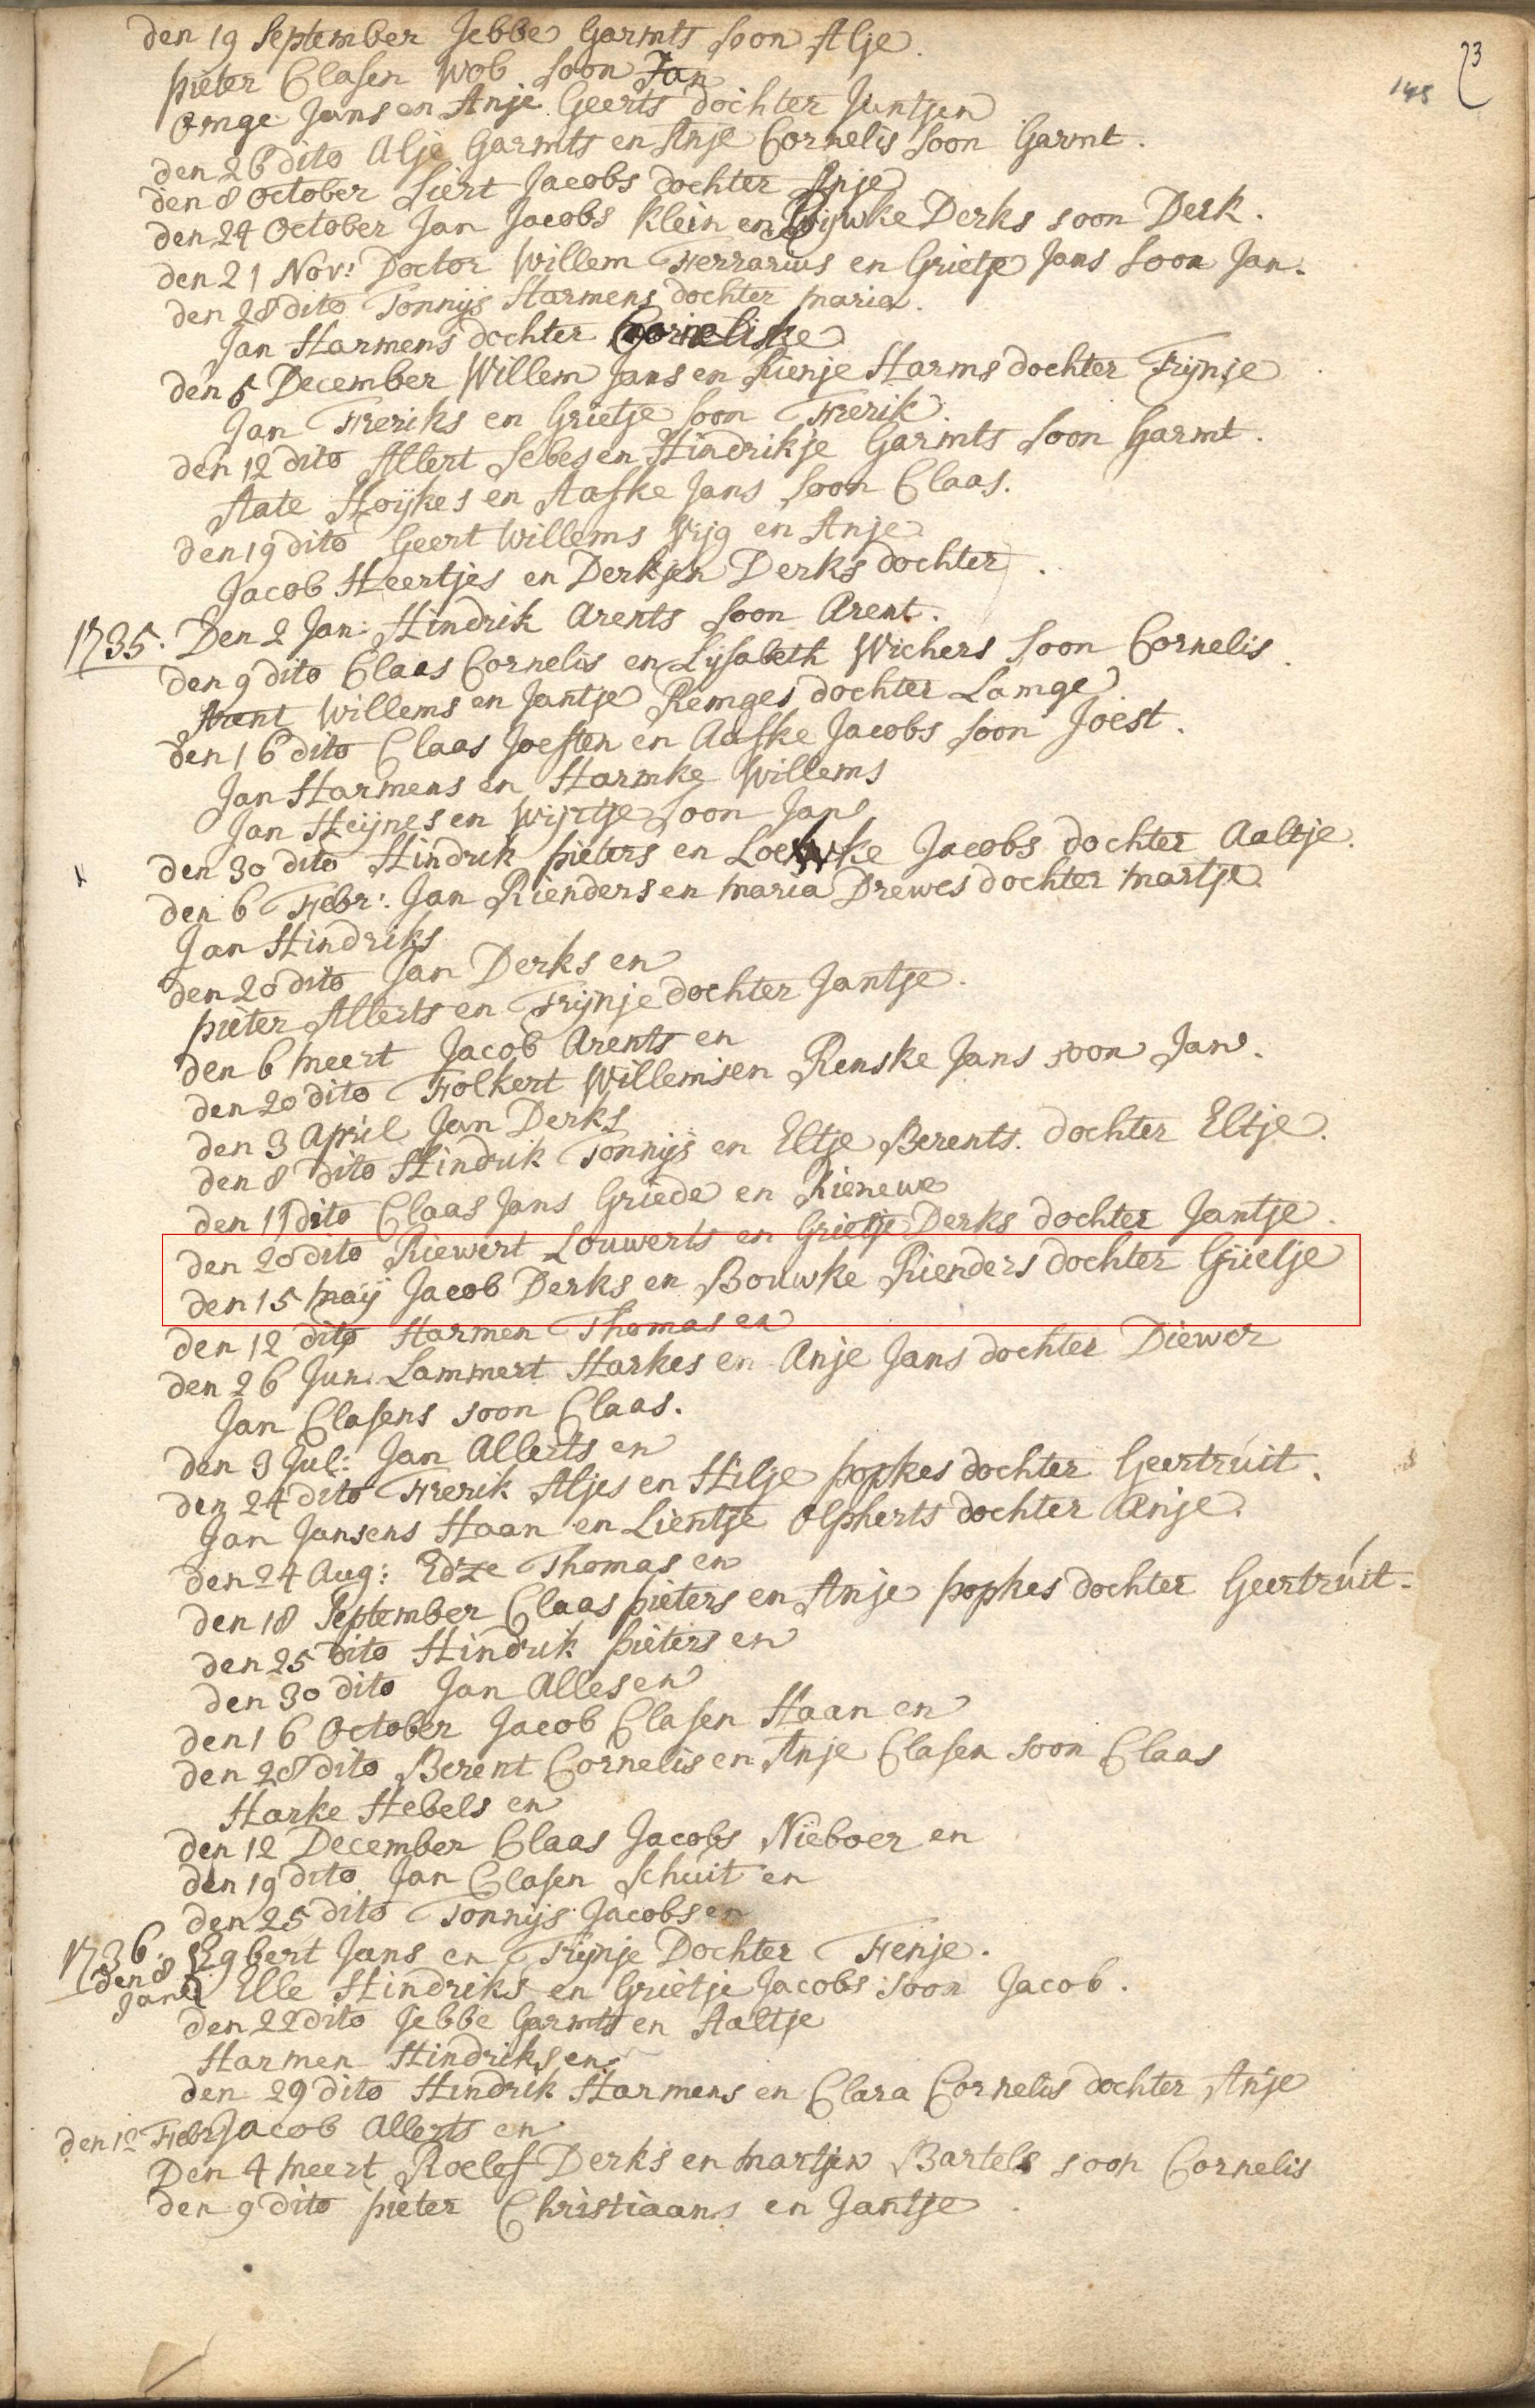 23
145
den 19 September Jebbe Garmts soon Alje.
pieter Clasen Wob soon Jan
Omge Jans en Anje Geerts dochter Juntjen
den 26 dito Alje Garmts en Anje Cornelis soon Garmt.
den 8 October Siert Jacobs dochter Anje
den 24 October Jan Jacobs Klein en Derks soon Derk.
den 21 Nov: Doctor Willem Ferrarius en Grietje Jans soon Jan.
den 28 dito Tonnijs Harmens dochter maria.
Jan Harmens dochter Corneliske
den 5 December Willem Jans en Rienje Harms dochter Trijnje
Jan Freriks en Grietje soon Frerik.
den 12 dito Allert Sebes en Hindrikje Garmts soon Garmt.
Aate Hoijkes en Aafke Jans soon Claas.
den 19 dito Geert Willems Vijg en Anje
Jacob Heertjes en Derkjen Derks dochter
1735. Den 2 Jan: Hindrik Arents soon Arent.
den 9 dito Claas Cornelis en Lijsabeth Wichers soon Cornelis.
Arent Willems en Jantje Remges dochter Lamge.
den 16 dito Claas Joesten en Aafke Jacobs soon Joest.
Jan Harmens en Harmke Willems
Jan Heijnes en Wijrtje soon Jan
den 30 dito Hindrik pieters en Loewke Jacobs dochter Aaltje.
den 6 Febr: Jan Rienders en maria Drewes dochter martje.
Jan Hindriks
den 20 dito Jan Derks en
pieter Allerts en Trijnje dochter Jantje.
den 6 meert Jacob Arents en
den 20 dito Folkert Willems en Renske Jans soon Jan.
den 3 April Jan Derks
den 8 dito Hindrik Tonnijs en Eltje Berents. dochter Eltje.
den 11 dito Claas Jans Griede en Rienewe
den 20 dito Riewert Louwerts en Grietje Derks dochter Jantje.
den 15 maij Jacob Derks en Bouwke Rienders dochter Grietje
den 12 dito Harmen Thomas en
den 26 Jun: Lammert Harkes en Anje Jans dochter Diewer
Jan Clasens soon Claas.
den 3 Jul: Jan Allerts en
den 24 dito Frerik Aljes en Hilje popkes dochter Geertruit.
Jan Jansens Haan en Lientje Olpherts dochter Anje.
den 24 Aug: Edze Thomas en
den 18 September Claas pieters en Anje popkes dochter Geertruit.
den 25 dito Hindrik pieters en
den 30 dito Jan Alles en
den 16 October Jacob Clasen Haan en
den 28 dito Berent Cornelis en Anje Clasen soon Claas
Harke Hebels en
den 12 December Claas Jacobs Nieboer en
den 19 dito Jan Clasen Schuit en
den 25 dito Tonnijs Jacobs en
1736. Egbert Jans en Trijnje Dochter Fenje.
den 8 Jan: Elle Hindriks en Grietje Jacobs soon Jacob.
den 22 dito Jebbe Garmts en Aaltje
Harmen Hindriks en
den 29 dito Hindrik Harmens en Clara Cornelis dochter Anje
den 12 Febr Jacob Allerts en
Den 4 meert Roelef Derks en martjen Bartels soon Cornelis
den 9 dito pieter Christiaans en Jantje